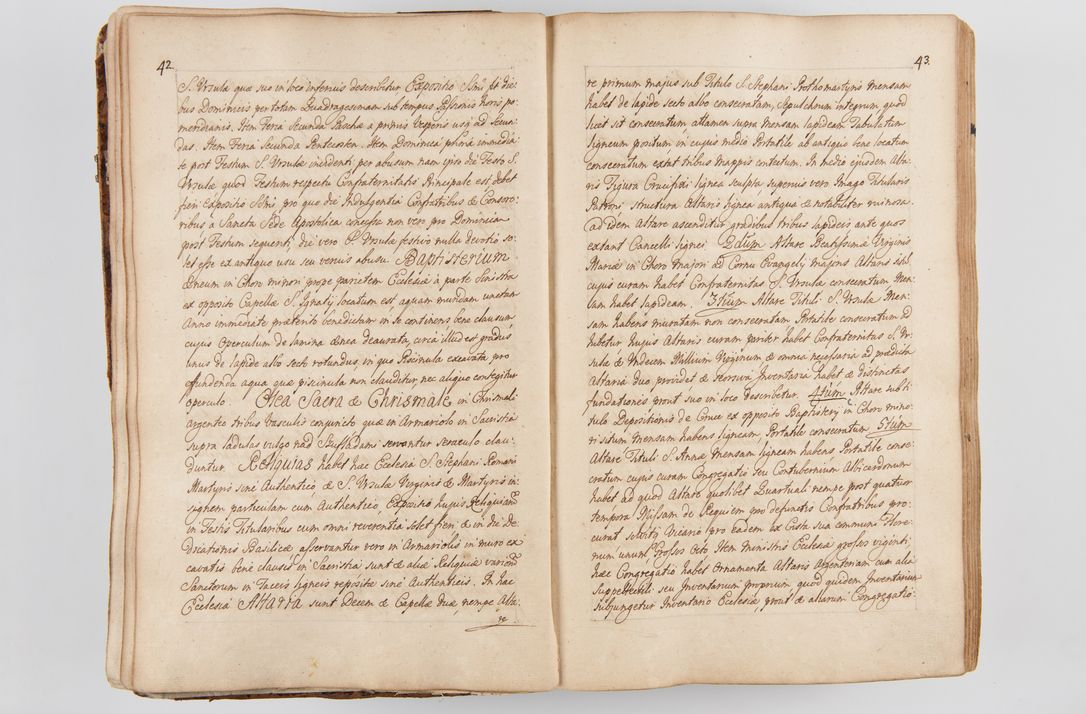 42.
S. Ursulæ quæ suo in loco inferius describetur Expositio Sṁi fit die:
bus Dominicis per totam Quadragesimam sub tempus Passionis horis po:
meridianis. Item Feria Secunda Paschæ a primis Vesperis usq; ad Secun:
das. Item Feria Secunda Pentecosten. Item Dominica prima immedia:
te post Festum S. Ursulæ incidenti per abusum nam ipso die Festo S.
Ursulæ quod Festum respectu Confraternitatis Principale est, debet
fieri expositio Sṁi pro quo die Indulgentiæ Confratribus & Conso:
ribus a Sancta Sede Apostolica concessæ non vero pro Dominica
post Festum sequenti, die vero S. Ursulæ festivo nulla devotio so:
let esse ex antiquo usu seu verius abusu. Baptisterium
Æneum in Choro minori prope parietem Ecclesiæ a parte Sinistra
ex opposito Capellæ S. Ignatij locatum est, aquam mundam unctam
Anno immediate præterito benedictam in se continens bene clausum
cujus Operculum de lamina ænea deaurata, circa illud est gradus
unus de lapide albo secto rotundus, in quo Piscinula excavata pro
effundenda aqua quæ piscinula non clauditur, nec aliquo contegitur
operculo. Olea Sacra & Chrismale in Chrismali
argenteo tribus Vasculis conjuncto quæ in Armariolo in Sacristia
supra ladulas vulgo nad Szufladami servantur seraculo clau:
duntur. Reliquias habet hæc Ecclesia S. Stephani Romani
Martyris sine Authentico, & S. Ursulæ Virginis & Martyris in:
signem particulam cum Authentico, Expositio hujus Reliquiarum
in Festis Titularibus cum omni reverentia solet fieri & in die De:
dicationis Basilicæ asservantur vero in Armariolis in muro ex
cavatis bene clausis in Sacristia sunt & aliæ Reliquiæ variorum
Sanctorum in Taceis ligneis repositæ sine Authenticis. In hac
Ecclesia Altaria sunt Decem & Capellæ duæ, nempe Alta:
re
43.
re primum majus sub Titulo S. Stephani Prothomartyris mensam
habet de lapide secto albo consecratam, Sepulchrum integrum, quod
licet sit consecratum attamen supra mensam lapideam Tabulatum
ligneum positum in cujus medio Portatile ab antiquo bene locatum
consecratum extat tribus mappis contectum. In medio ejusdem Alta:
ris Figura Crucifixi lignea sculpta, superius vero Imago Titularis
Patroni structura Altaris lignea antiqua & notabiliter ruinosa.
ad idem Altare ascenditur gradibus tribus lapideis ante quos
extant Cancelli lignei. 2dum Altare Beatissimæ Virginis
Mariæ in Choro majori ad Cornu Evangelij majoris Altaris
cujus curam habet Confraternitas S. Ursulæ consecratum Men:
sam habet lapideam. 3tium Altare Tituli S. Ursulæ Men:
sam habens muratam non consecratam Portatile consecratum ad
hibetur hujus Altaris curam pariter habet Confraternitas S. Ur:
sulæ & Undecim Millium Virginum & omnia necessaria ad prædicta
Altaria duo providet & seorsiva Inventaria habet & distinctas
fundationes prout suo in loco describetur. 4tum Altare sub ti:
tulo Depositionis de Cruce ex opposito Baptisterij in Choro mino:
ri situm mensam habens ligneam Portatile consecratum 5tum
Altare Tituli S. Annæ Mensam ligneam habens Portatile conse:
cratum cujus curam Congregatio seu Contubernium Albicerdonum
habet ad quod Altare quolibet Quartuali nempe post quatuor
tempora Missam de Requiem pro defunctis Confratribus pro:
curat solvitq; Vicario pro eadem ex Cista sua communi Flore:
num unum Grossos Octo Item ministris Ecclesiæ grossos viginti.
hæc Congregatio habet Ornamenta Altaris Argenteriam cum alia
suppellectili seu Inventarium proprium quod quidem Inventarium
subjungetur Inventario Ecclesiæ, prout & aliarum Congregatio: